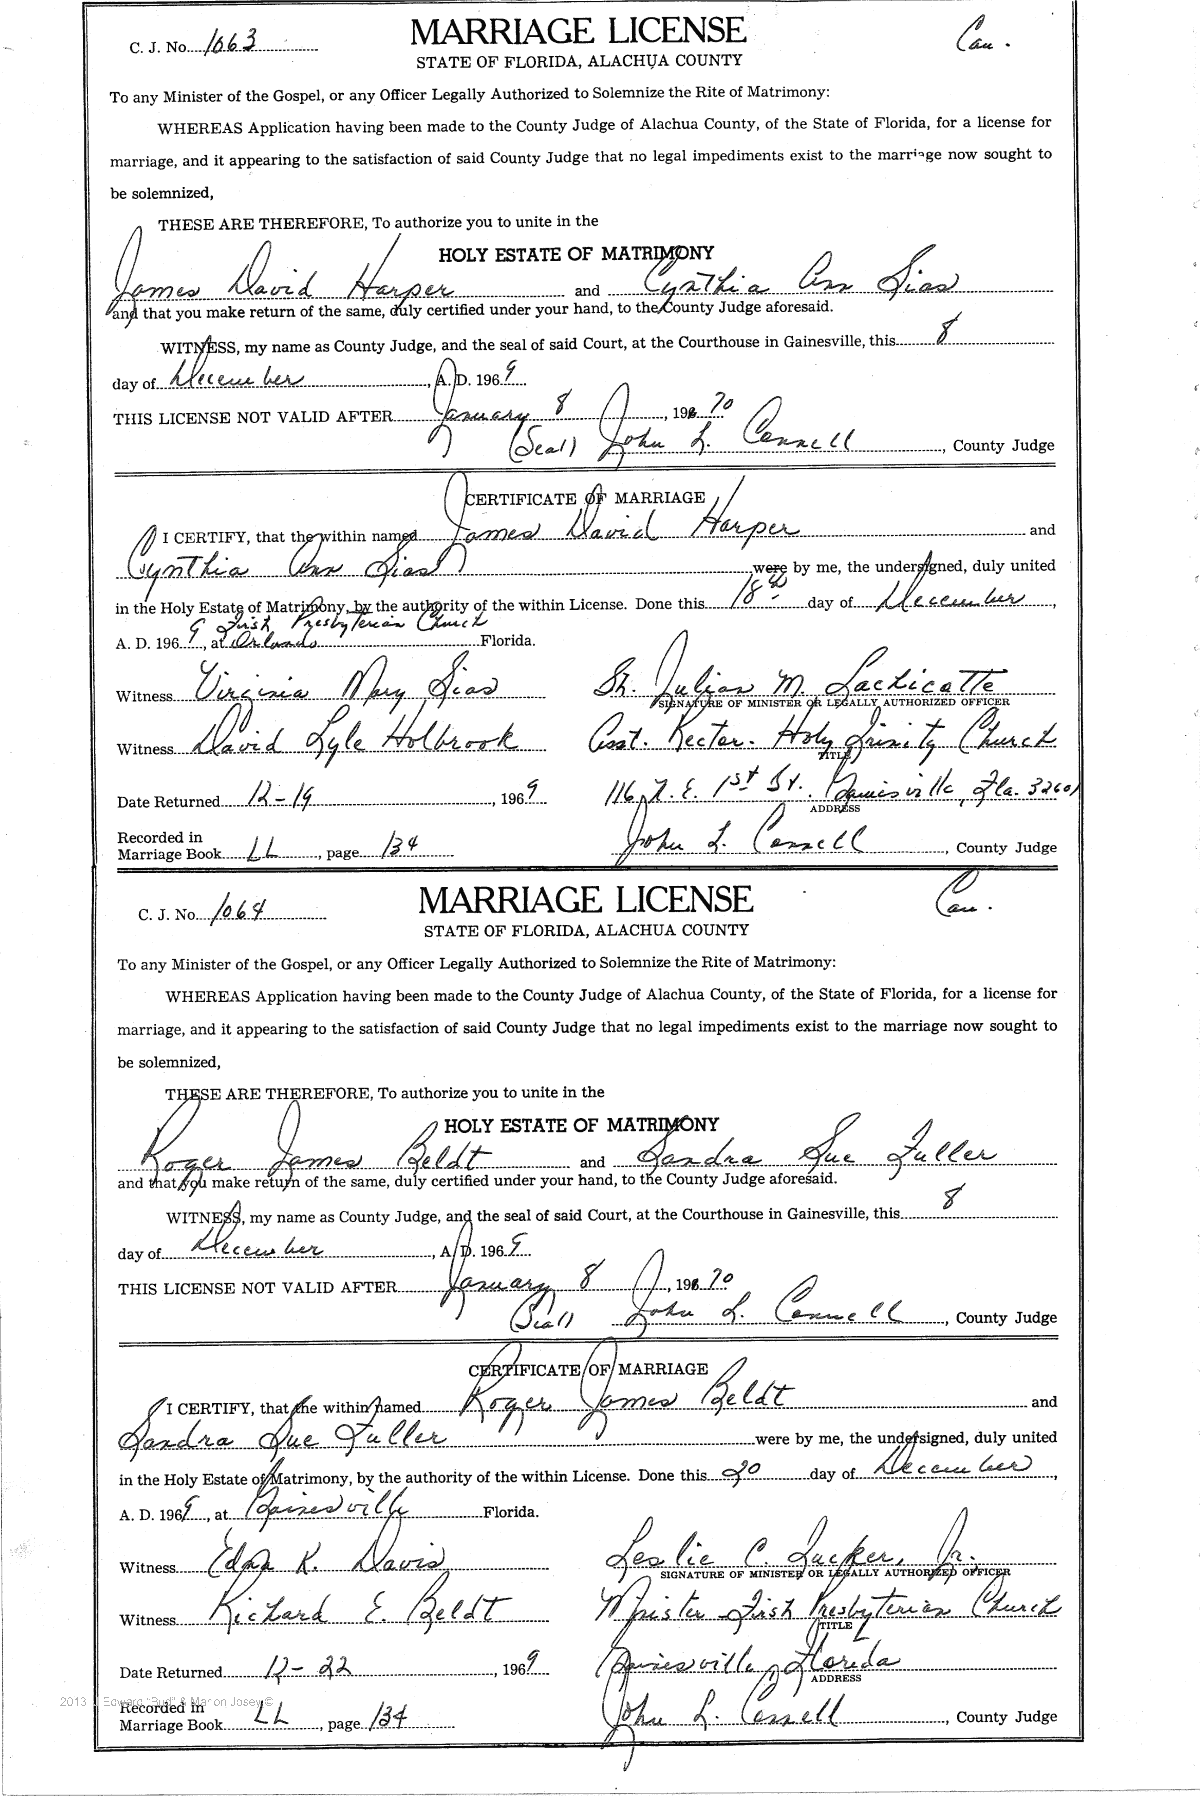 C. J. No. 1063
MARRIAGE LICENSE
Cau.
STATE OF FLORIDA, ALACHUA COUNTY
To any Minister of the Gospel, or any Officer Legally Authorized to Solemnize the Rite of Matrimony:
WHEREAS Application having been made to the County Judge of Alachua County, of the State of Florida, for a license for
marriage, and it appearing to the satisfaction of said County Judge that no legal impediments exist to the marriage now sought to
be solemnized,
THESE ARE THEREFORE, To authorize you to unite in the
HOLY ESTATE OF MATRIMONY
James David Harper and Cynthia Ann Sias
and that you make return of the same, duly certified under your hand, to the County Judge aforesaid.
WITNESS, my name as County Judge, and the seal of said Court, at the Courthouse in Gainesville, this 8
day of December, A. D. 1969
THIS LICENSE NOT VALID AFTER January 8, 1970
(Seal) John L. Connell, County Judge
CERTIFICATE OF MARRIAGE
I CERTIFY, that the within named James David Harper and
Cynthia Ann Sias were by me, the undersigned, duly united
in the Holy Estate of Matrimony, by the authority of the within License. Done this 18th day of December,
First Presbyterian Church
A. D. 1969, at Orlando Florida.
Witness Virginia Mary Sias
St. Julian M. Lachicotte
SIGNATURE OF MINISTER OR LEGALLY AUTHORIZED OFFICER
Witness David Lyle Holbrook
Asst. Rector. Holy Trinity Church
TITLE
Date Returned 12-19, 1969
116 N. E. 1st St. Gainesville, Fla. 32601
ADDRESS
Recorded in
Marriage Book LL, page 134
John L. Connell, County Judge
C. J. No. 1064
MARRIAGE LICENSE
Cau.
STATE OF FLORIDA, ALACHUA COUNTY
To any Minister of the Gospel, or any Officer Legally Authorized to Solemnize the Rite of Matrimony:
WHEREAS Application having been made to the County Judge of Alachua County, of the State of Florida, for a license for
marriage, and it appearing to the satisfaction of said County Judge that no legal impediments exist to the marriage now sought to
be solemnized,
THESE ARE THEREFORE, To authorize you to unite in the
HOLY ESTATE OF MATRIMONY
Roger James Beldt and Sandra Sue Fuller
and that you make return of the same, duly certified under your hand, to the County Judge aforesaid.
WITNESS, my name as County Judge, and the seal of said Court, at the Courthouse in Gainesville, this 8
day of December, A. D. 1969.
THIS LICENSE NOT VALID AFTER January 8, 1970
(Seal) John L. Connell, County Judge
CERTIFICATE OF MARRIAGE
I CERTIFY, that the within named Roger James Beldt and
Sandra Sue Fuller were by me, the undersigned, duly united
in the Holy Estate of Matrimony, by the authority of the within License. Done this 20 day of December,
A. D. 1969, at Gainesville Florida.
Witness Edna K. Davis
Leslie C. Tucker, Jr.
SIGNATURE OF MINISTER OR LEGALLY AUTHORIZED OFFICER
Witness Richard E. Beldt
Minister First Presbyterian Church
TITLE
Date Returned 12-22, 1969
Gainesville, Florida
ADDRESS
2013 Edward "Bud" & Marion Josey ©
Recorded in
Marriage Book LL, page 134
John L. Connell, County Judge